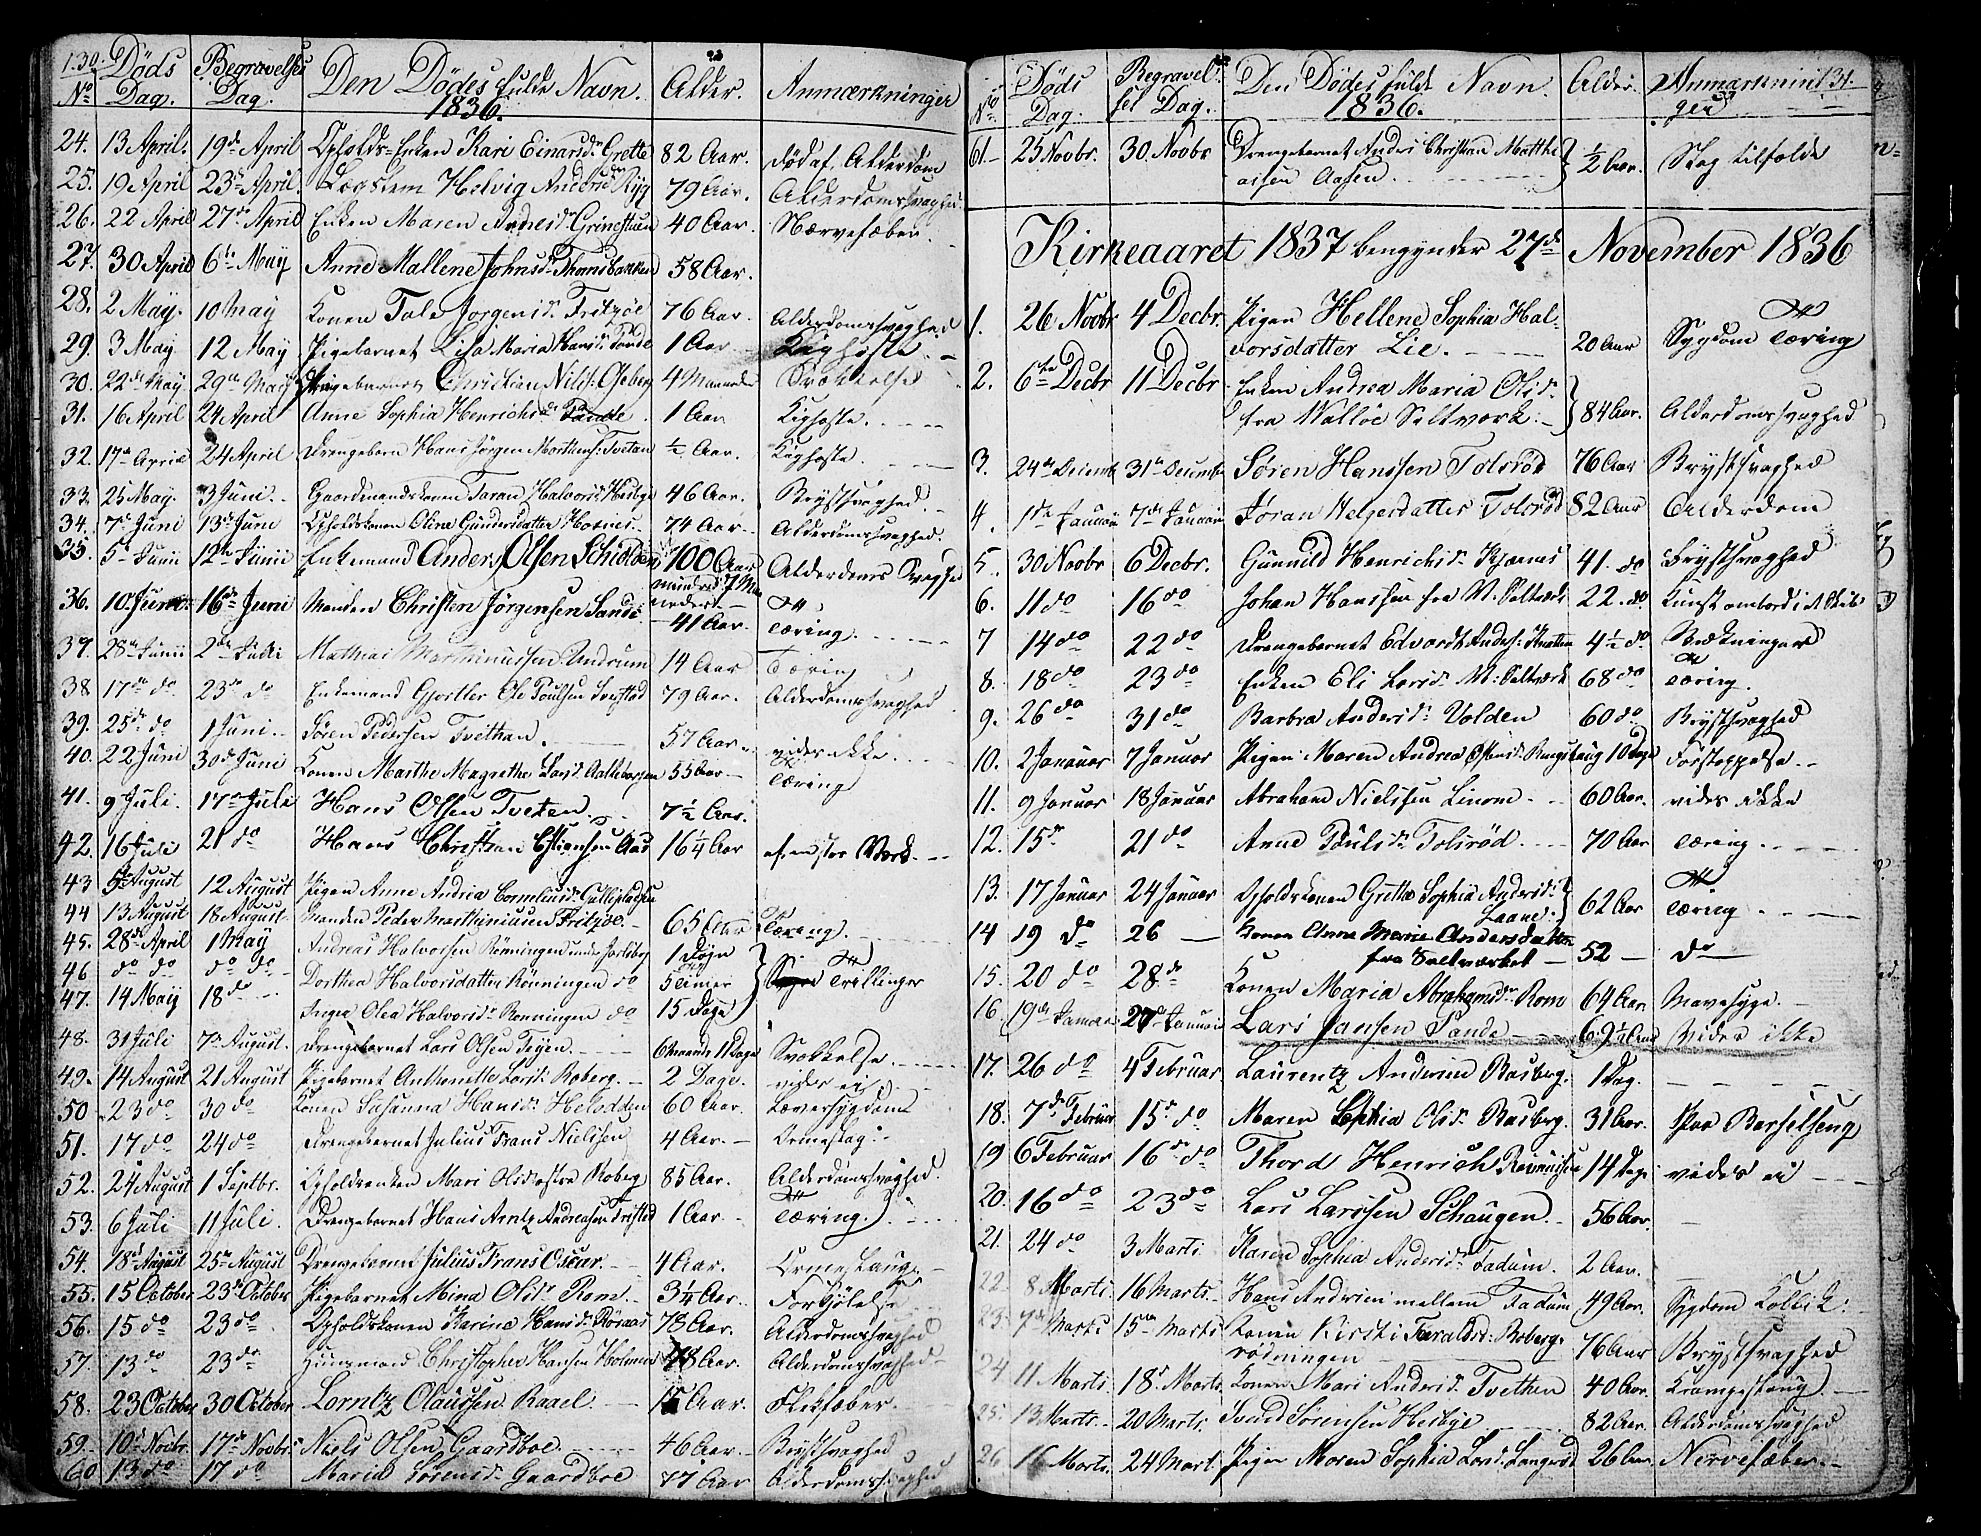 130.
No
Døds Dag.
Begravelses Dag.
Den Dødes fulde Navn. 1836.
Alder.
Anmærkninger
24. 13 April. 19de April Opholds-Enken Kari Einarsdr Grette 82 Aar. død af Alderdom
25. 19 April 23de April. Helvig Andersdr Ryg 79 Aar. Alderdomssvaghed.
26. 22 April 27de April Enken Maren 40 Aar. Nærvefæber.
27. 30 April 6te May Anne Mallene Johnsdr 58 Aar.
28. 2 May. 10 May Konen Tale Jørgensdr Fritzøe 76 Aar. Alderdomssvaghed
29. 3 May 12 May Pigebarnet Lisa Maria Hansdr Sande 1 Aar Kighoste.
30. 22de May 29de May Christian Nilss: 4 Maaneder Svækkelse
31. 16 April 24 April Anne Sophia Henrichsdr Sande 1 Aar Kighoste.
32. 17de April 24 April Drengebarn Hans Jørgen Morthens: Tvetan ½ Aar. Kighoste.
33. 25 May. 3 Juni. Gaardmandskonen Taran Halvorsdr Hesbye 46 Aar. Brystsvaghed.
34. 7de Juni 13de Juni Opholdskonen Oline Gundersdatter 74 Aar. Alderdomssvaghed.
35. 5te Junii 12te Junii Enkemand Anders Olsen 100 Aar Alderdoms Svaghed
36. 10. Juni. 16de Juni Manden Christen Jørgensen Sande 41 Aar. Tæring.
37. 28de Junii 2den Julii Mathias Undrum 14 Aar Tæring
38 17de do 23de do Enkemand Ole Poulsen 79 Aar. Alderdomssvaghed
39. 25de do 1 Juni. Søren Pedersen Tvethan. 57 Aar. vides ikke.
40. 22 Juni 30de Juni Konen Marthe Magrethe Larsdr 55 Aar Tæring
41. 9 Juli. 17de Juli Hans Olsen Tveten. 7½ Aar.
42. 16 Juli 21 do Hans Christian Aas 16¼ Aar
43 5te August 12 August Pigen Anne Andrea Corneliusdr
44 13 August 18 August Manden Peder Marthiniusen Fritzøe. 65 Aar Tæring.
45. 28de April 1 May Andreas Halvorsen Rønningen 1 Døgn
46 do do do do Dorthea Halvorsdatter Rønningen do 5 Timer Trillinger
47. 14 May 18 do Inger Olea Halvorsdr Rønningen do 15 Dage
48. 31 Juli 7de August. Drengebarnet Lars Olsen Teyen. 6 Maaneder 11 Dage Svækkelse.
49. 14 August 21 August Pigebarnet Anthonette Larsdr Roberg. 2 Dage. vides ei.
50 23 do 30 do Konen Susanna Hansdr 60 Aar. Leversygdom
51. 17 do 24 do Drengebarnet Julius Frans Nielsen 4 Aar. Ormeslag.
52. 24 August 1 Septbr. Opholdsenken Mari Olsdr østre Roberg 85 Aar. Alderdomssvaghed.
53. 6 Juli 11 Juli. Drengebarnet Hans Arntz Andreasen 1 Aar. Tæring.
54. 18de August 25de August Drengebarnet Julius Frans Oscar. 4 Aar.
55. 15 October 23de October Pigebarnet Mina Olsdr Rom. 3¼ Aar. Forkjølelse
56. 15 do 23 do Opholdskonen Karine Hansdr 78 Aar. Alderdomssvaghed
57. 13 do 23 do Huusmand Christopher Hansen 78 Aar. Alderdomssvaghed
58. 23 October 30 October Lorntz Olaussen Raael. Aar. Flekfæber.
59. 10de Novbr 17de Novbr: Niels Olsen Gaardboe. 46 Aar. Brystsvaghed
60 13 do 17 do Maria Sørensdr Gaardboe 77 Aar Alderdomssvaghed
No
Døds Dag:
Begravelses Dag.
Den Dødes fulde Navn. 1836.
Alder.
Anmærkninger
131.
61. 25 Novbr. 30. Novbr Drengebarnet Anders Christian Matthiasen Aasen. ½ Aar. Slag tilfelde
Kirkeaaret 1837 bengynder 27de November 1836
1. 26 Novbr 4 Decbr. Pigen Hellene Sophia Halvorsdatter Lie. 20 Aar Sygdom Tæring
2. 6te Decbr 11 Decbr. Enken Andrea Maria Olsdr fra Walløe Saltværk. 84 Aar. Alderdomssvaghed
3. 24de Decemb 31te December Søren Hanssen Tolsrød 76 Aar Brystsvaghed
4. 1ste Januar 7de Januar Jøran Helgesdatter Tolsrød 82 Aar Alderdom
5. 30 Novbr 6 Decbr. Gunnild Henrichsdr Kjærnes 41 do Brystsvaghed
6. 11 do 16 do Johan Hanssen fra W. Saltværk 22 do
7 14 do 22 do Drengebarnet Edvardt Anders: 4½ do
8. 18 do 23 do Enken Eli Larsdr W. Saltværk 68 do Tæring.
9. 26 do 31 do Barbra Andersdr Volden 60 do Brystsvaghed
10. 2 Januar 7 Januar Pigen Maren Andrea 10 Dage Forstoppelse.
11. 9 Januar 18 Januar Abraham Nielsen Linom. 60 Aar. vides ikke
12. 15de 21 do Anne Poulsdr Tolsrød. 70 Aar Tæring.
13. 17 Januar 24 Januar Opholdskonen Grethe Sophia Andersdr Laane. 62 Aar Tæring.
14 19 do 26 Konen Anne Marie Andersdatter fra Saltværket 52 do
15. 20 do 28 do Konen Maria Abrahamsdr Rom 64 Aar Mavesyge.
16. 19de Januar 27de Januar Lars Jansen Sande 69½ Aar Vides ikke
17. 26 do 4 Februar. Laurentz Andersen Basberg. 1 Dag.
18. 7de Februar 15de do Maren Sophia Olsdr Basberg. 31 Aar. Paa Barselseng
19 6 Februar 16de do Thord Henrich Rasmussen 14 Dage vides ei
20. 16 do 23 do Lars Larssen Schaugen. 56 Aar.
21. 24 do 3 Marts Karen Sophia Andersdr Fadum. 2 Aar.
22. 8 Marts 16 Marts. Hans Andersen mellem Fadum 49 Aar. Sygdom Kollik.
23. 7de Marts 15de Marts Konen Kirsti Taraldsdr Roberg rødningen 76 Aar Brystsvaghed
24 11 Marts 18de Marts. Konen Mari Andersdr Tvethen 40 Aar.
25. 13. Marts. 20 Marts. Svend Sørensen Hesbye 82 Aar. Alderdomssvaghed
26 16 Marts. 24 Mart. Pigen Maren Sophia Larsdr 26 Aar Nervefæber.